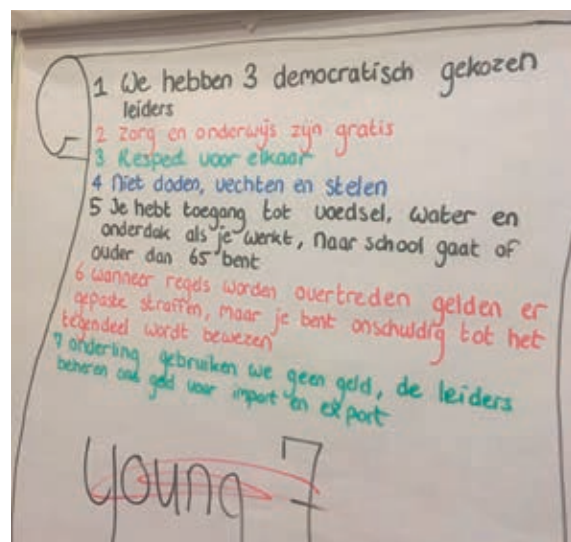 1 We hebben 3 democratisch gekozen
leiders
2 Zorg en onderwijs zijn gratis
3 Respect voor elkaar
4 Niet doden, vechten en stelen
5 Je hebt toegang tot voedsel, water en
onderdak als je werkt, naar school gaat of
ouder dan 65 bent
6 wanneer regels worden overtreden gelden er
gepaste straffen, maar je bent onschuldig tot het
tegendeel wordt bewezen
7 onderling gebruiken we geen geld, de leiders
beheren ons geld voor import en export
young 7